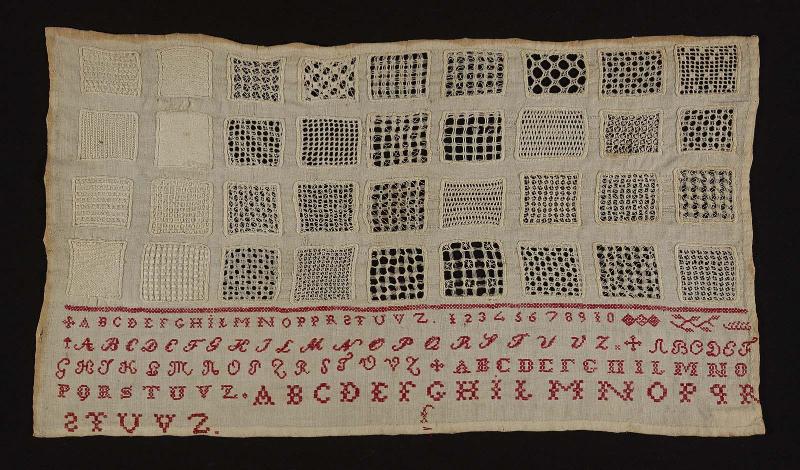 A B C D E F G H I L M N O P P R S T U V Z. 1 2 3 4 5 6 7 8 9 1 0
A B C D E F G H I L M N O P Q R S T U V Z. A B C D E F
G H I K L M N O P Q R S T U V Z A B C D E F G H I L M N O
P Q R S T U V Z. A B C D E F G H I L M N O P Q R
S T U V Z.